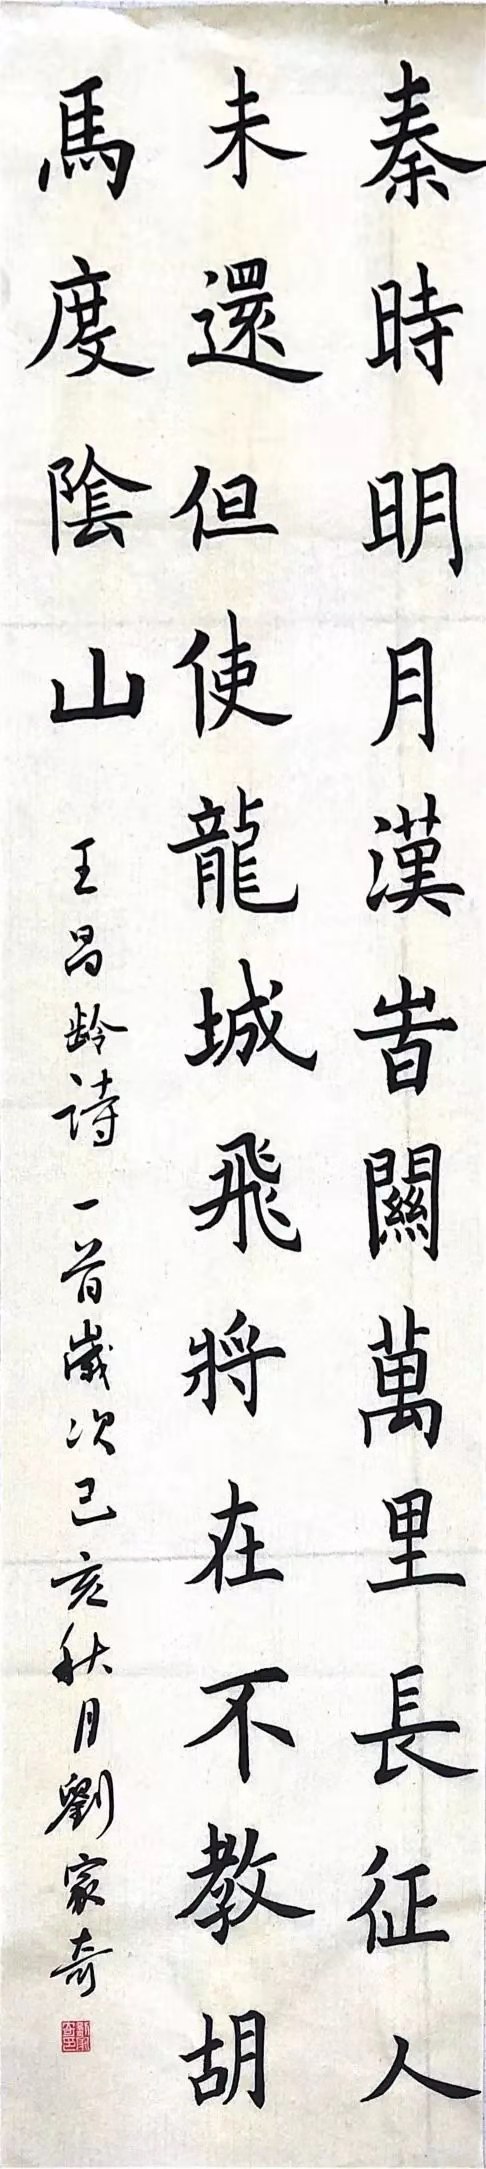 秦時明月漢旹關萬里長征人
未還但使龍城飛將在不教胡
馬度陰山
王昌龄詩一首歲次己亥秋月劉家奇